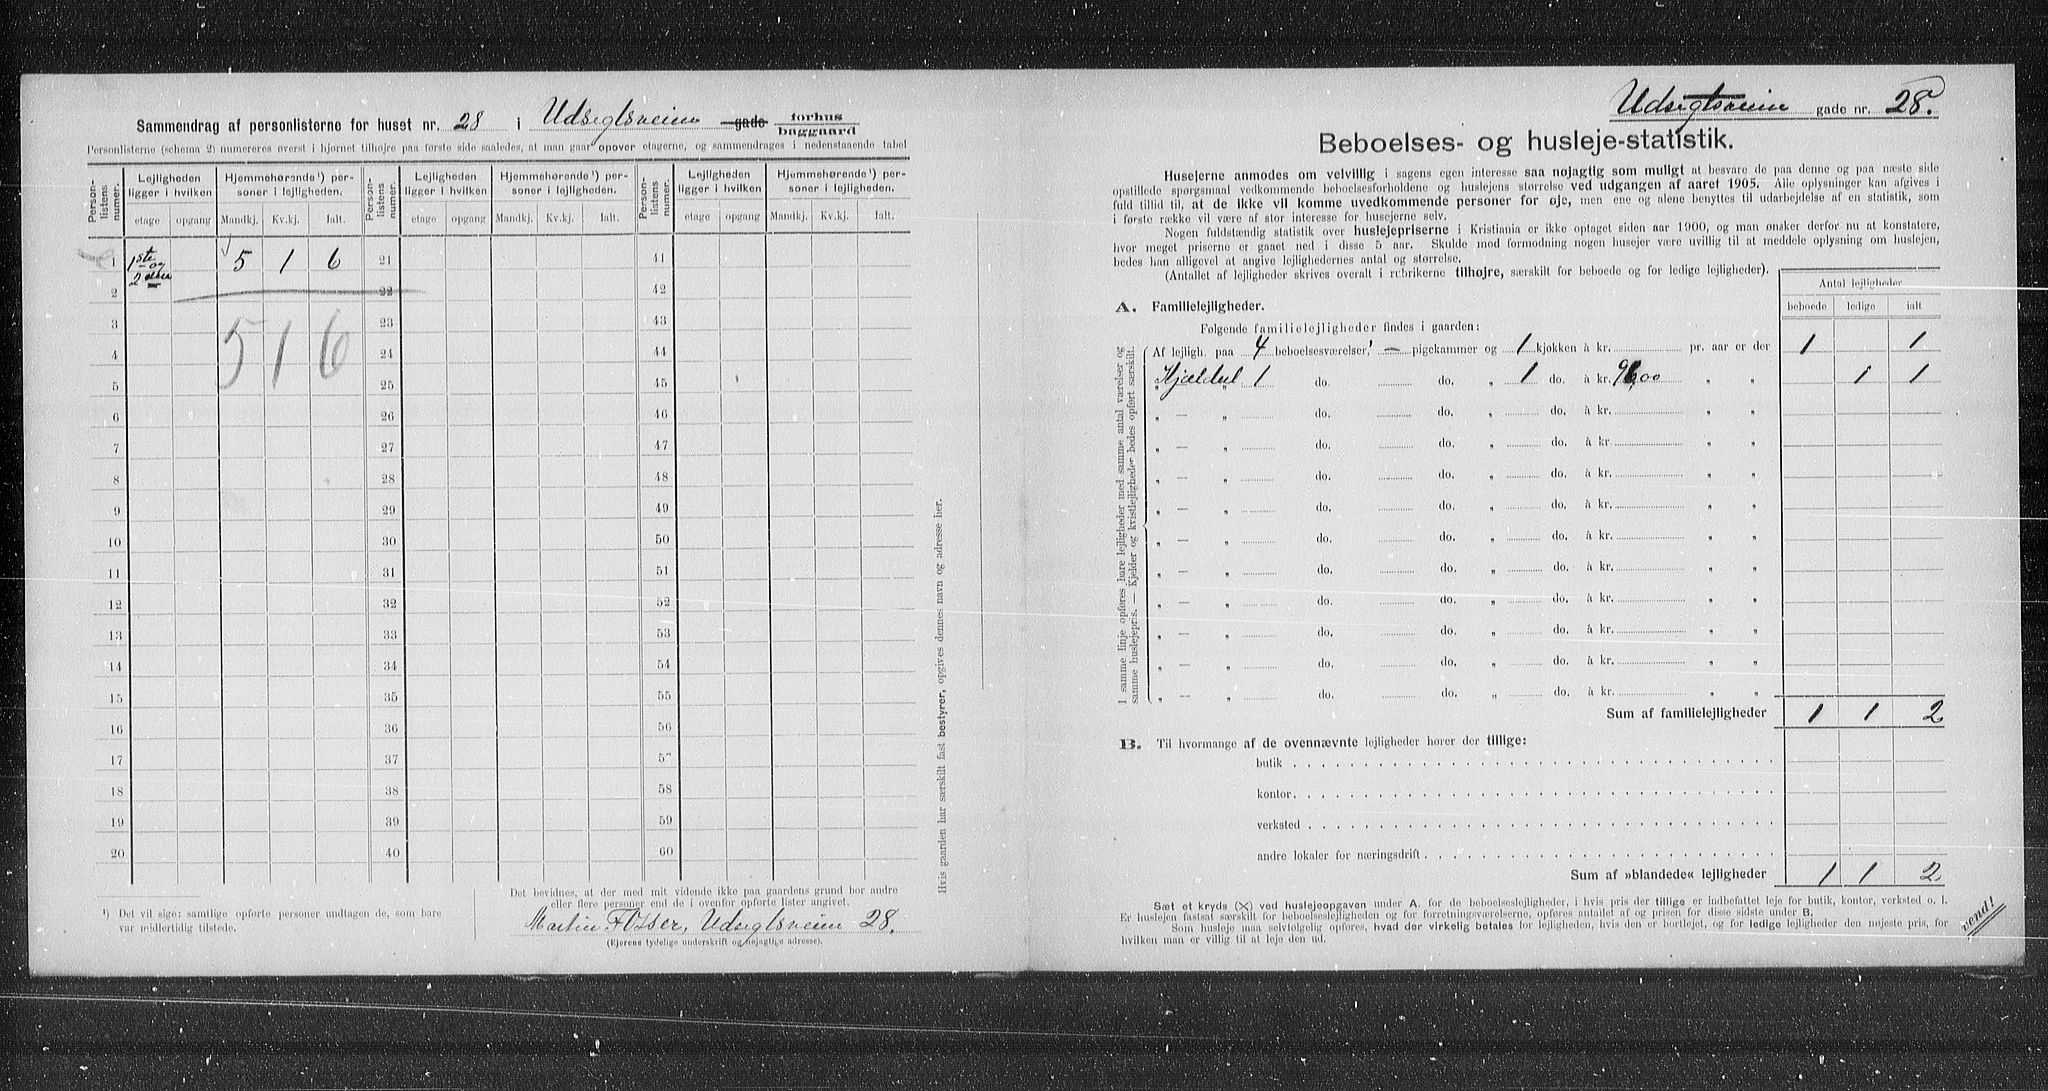 Sammendrag af personlisterne for huset nr. 28 i Udsigtsveien gade forhus baggaard
Personlisterne (schema 2) numereres øverst i hjørnet tilhøjre paa første side saaledes, at man gaar opover etagerne, og sammendrages i nedenstaaende tabel
Person-listens numer. Lejligheden ligger i hvilken Hjemmehørende¹) personer i lejligheden. Person-listens numer. Lejligheden ligger i hvilken Hjemmehørende¹) personer i lejligheden. Person-listens numer. Lejligheden ligger i hvilken Hjemmehørende¹) personer i lejligheden.
etage opgang Mandkj. Kv.kj. Ialt. etage opgang Mandkj. Kv.kj. Ialt. etage opgang Mandkj. Kv.kj. Ialt.
1 1ste og 5 1 6 21 41
2 2den 22 42
3 23 43
4 5 1 6 24 44
5 25 45
6 26 46
7 27 47
8 28 48
9 29 49
10 30 50
11 31 51
12 32 52
13 33 53
14 34 54
15 35 55
16 36 56
17 37 57
18 38 58
19 39 59
20 40 60
¹) Det vil sige: samtlige opførte personer undtagen de, som bare
var midlertidig tilstede.
Det bevidnes, at der med mit vidende ikke paa gaardens grund bor andre
eller flere personer end de i ovenfor opførte lister angivet.
Martin Fosser, Udsigtsveien 28.
(Ejerens tydelige underskrift og nøjagtige adresse).
Hvis gaarden har særskilt fast bestyrer, opgives dennes navn og adresse her.
Udsigtsveien gade nr. 28.
Beboelses- og husleje-statistik.
Husejerne anmodes om velvillig i sagens egen interesse saa nøjagtig som muligt at besvare de paa denne og paa næste side
opstillede spørgsmaal vedkommende beboelsesforholdene og huslejens størrelse ved udgangen af aaret 1905. Alle oplysninger kan afgives i
fuld tillid til, at de ikke vil komme uvedkommende personer for øje, men ene og alene benyttes til udarbejdelse af en statistik, som
i første række vil være af stor interesse for husejerne selv.
Nogen fuldstændig statistik over huslejepriserne i Kristiania er ikke optaget siden aar 1900, og man ønsker derfor nu at konstatere,
hvor meget priserne er gaaet ned i disse 5 aar. Skulde mod formodning nogen husejer være uvillig til at meddele oplysning om huslejen,
bedes han alligevel at angive lejlighedernes antal og størrelse.
(Antallet af lejligheder skrives overalt i rubrikerne tilhøjre, særskilt for beboede og for ledige lejligheder).
Antal lejligheder
beboede ledige ialt
A. Familielejligheder.
Følgende familielejligheder findes i gaarden:
Af lejligh. paa 4 beboelsesværelser, — pigekammer og 1 kjøkken à kr. pr. aar er der 1 1
„ Kjælder 1 do. do. „ 1 do. à kr. 96,00 „ „ 1 1
„ — „ do. do. „ do. à kr. „ „
„ — „ do. do. „ do. à kr. „ „
„ — „ do. do. „ do. à kr. „ „
„ — „ do. do. „ do. à kr. „ „
„ — „ do. do. „ do. à kr. „ „
„ — „ do. do. „ do. à kr. „ „
„ — „ do. do. „ do. à kr. „ „
„ — „ do. do. „ do. à kr. „ „
„ — „ do. do. „ do. à kr. „ „
„ — „ do. do. „ do. à kr. „ „
I samme linje opføres bare lejligheder med samme antal værelser og
samme huslejepris. — Kjelder og kvistlejligheder bedes opført særskilt.
Sum af familielejligheder 1 1 2
B. Til hvormange af de ovennævnte lejligheder hører der tillige:
butik
kontor
verksted
andre lokaler for næringsdrift
Sum af »blandede« lejligheder 1 1 2
Sæt et kryds (X) ved huslejeopgaven under A. for de beboelseslejligheder, i hvis pris der tillige er indbefattet leje for butik, kontor, verksted o. l.
Er huslejen fastsat særskilt for beboelseslejligheden og for forretningsværelserne, opføres antallet af og prisen for disse sidste under B.
Som husleje maa selvfølgelig opføres, hvad der virkelig betales for lejligheden, hvis den er bortlejet, og for ledige lejligheder den nøjeste pris, for
hvilken man er villig til at leje den ud.
vend!